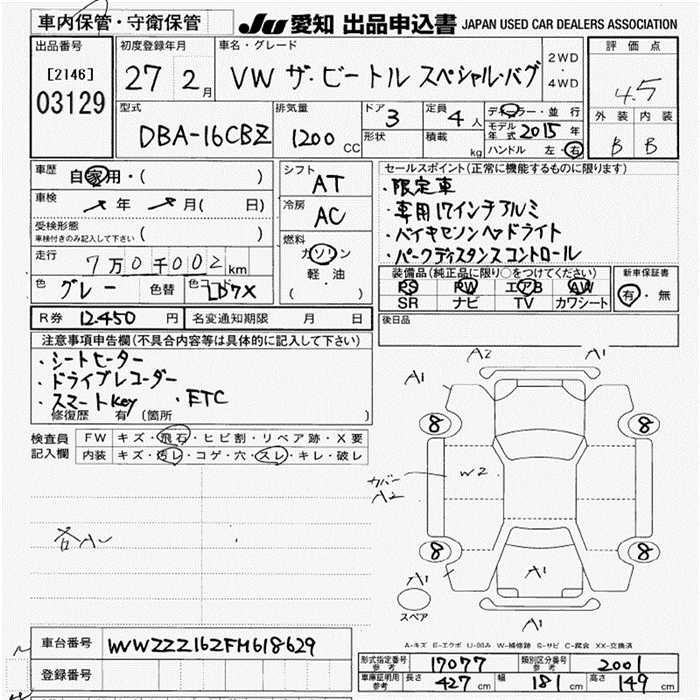 車内保管・守衛保管
JU 愛知 出品申込書 JAPAN USED CAR DEALERS ASSOCIATION
出品番号
[2146]
03129
初度登録年月
27 2月
車名・グレード
VW ザ・ビートル スペシャル・バグ
2WD
・
4WD
評価点
4.5
外装 内装
B B
型式
DBA-16CBZ
排気量
1200 CC
ドア 3
形状
定員 4人
積載 kg
ディーラー・並行
モデル年式 2015年
ハンドル 左・右
車歴 自家用・( )
車検 年 月( 日)
受検形態
車検付きのみ記入して下さい ( )
走行 7万0千002km
色 グレー 色替 色コード LD7X
シフト
AT
冷房
AC
燃料
ガソリン
軽・油
( )
セールスポイント(正常に機能するものに限ります)
・限定車
・専用17インチアルミ
・バイキセノンヘッドライト
・パークディスタンスコントロール
装備品(純正品に限り○をつけてください)
PS PW エアB AW
SR ナビ TV カワシート
新車保証書
有・無
R券 12,450円 名変通知期限 月 日
後日品
注意事項申告欄(不具合内容等は具体的に記入して下さい)
・シートヒーター
・ドライブレコーダー
・スマートKey ・ETC
修復歴 有 (箇所 )
検査員記入欄
FW キズ・飛石・ヒビ割・リペア跡・X要
内装 キズ・汚レ・コゲ・穴・スレ・キレ・破レ
A2 A1
A1
8 8
カバー
A2
W2
各A
8 8
A1 A1
A1
スペア
A-キズ E-エクボ U-凹み W-補修跡 S-サビ C-腐食 XX-交換済
車台番号 WVWZZZ16ZFM618629
登録番号
形式指定番号 参考 17077 類別区分番号 参考 2001
車庫証明用 参考 長さ 427cm 幅 181cm 高さ 149cm